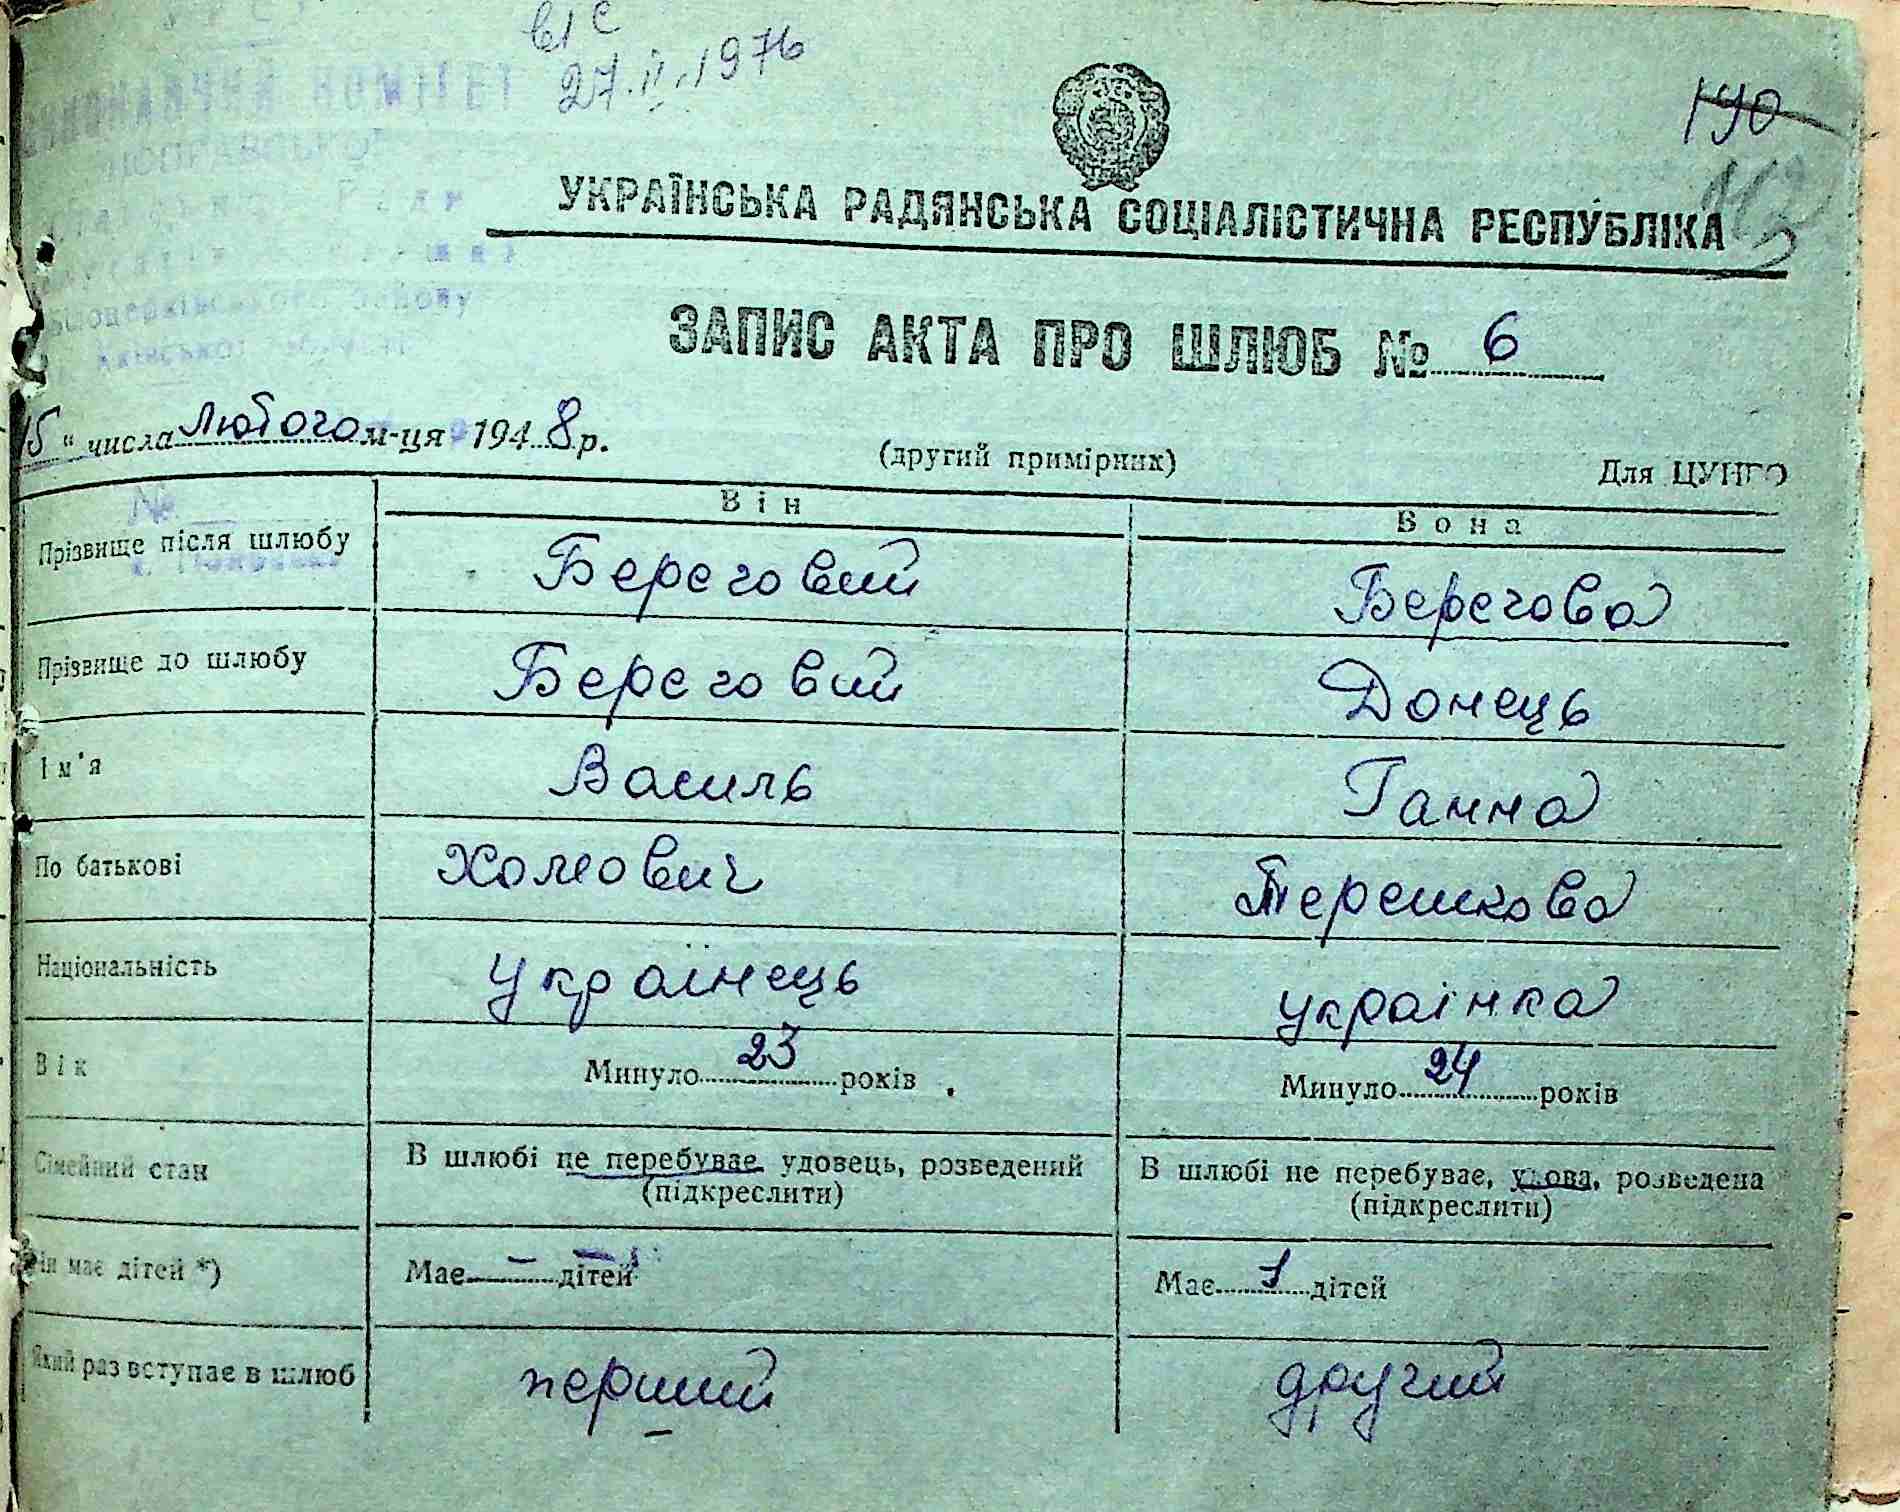 в/с
27.ІІ.1976
190
УКРАЇНСЬКА РАДЯНСЬКА СОЦІАЛІСТИЧНА РЕСПУБЛІКА
ЗАПИС АКТА ПРО ШЛЮБ № 6
15 " числа Лютого м-ця 1948 р.
(другий примірник)
Для ЦУНГО
Він
Вона
Прізвище після шлюбу
Береговий
Берегова
Прізвище до шлюбу
Береговий
Донець
Ім'я
Василь
Ганна
По батькові
Хомович
Терешкова
Національність
українець
українка
Вік
Минуло 23 років
Минуло 24 років
Сімейний стан
В шлюбі не перебуває удовець, розведений
(підкреслити)
В шлюбі не перебуває, удова, розведена
(підкреслити)
має дітей *)
Має – дітей
Має 1 дітей
Який раз вступає в шлюб
перший
другий